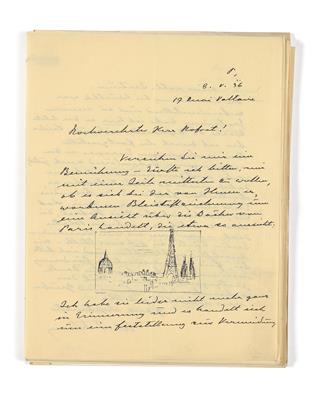 8. V. 36
19 Quai Voltaire
Hochverehrter Herr Hofrat!
Verzeihen Sie mir eine
Bemühung – dürfte ich bitten, mir
mit einer Zeile mitteilen zu wollen,
ob es sich bei der von Ihnen
Bleistiftzeichnung um
eine Ansicht über die Dächer von
Paris handelt, die etwa so aussieht,
Ich habe sie leider nicht mehr ganz
in Erinnerung und es handelt sich
um eine Feststellung zur Vermeidung